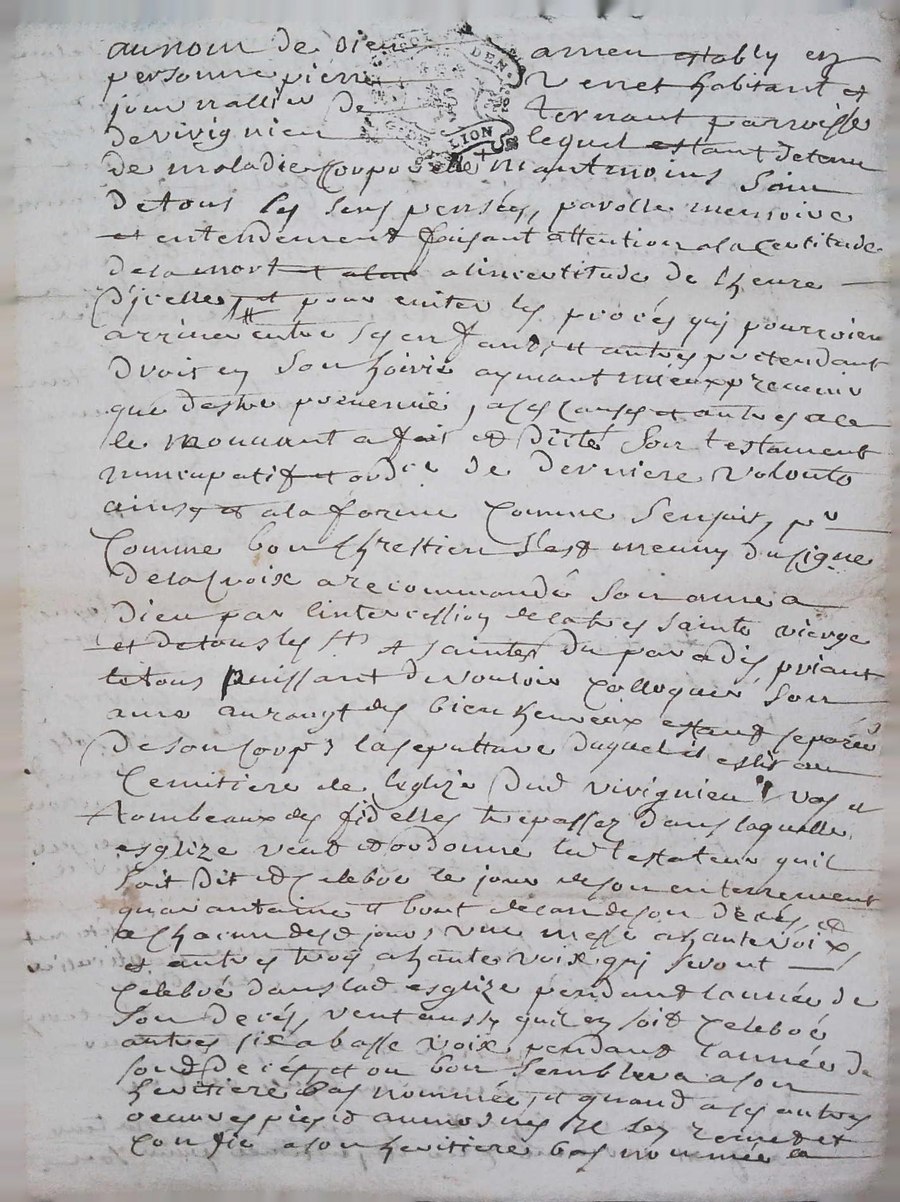 au nom de Dieu amen estably en
personne pierre Verret habitant et
journallier de ternant parroisse
de vivignieu lequel estant detenu
GEN. DE LION
de maladie corporelle neantmoins sain
de tous ses sens pensées, parolle memoire
et entendement faisant attention a la Certitude
de la mort et a lincertitude de lheure
dicelle, et pour eviter les procés qui pourroient
arriver entre ses enfants et autres pretendant
droits en son hoirie aymant mieux prevenir
que destre prevenue, a ces causes et autres a ce
le mouvant a fait et dicté son testament
nuncupatif et ordre de derniere volonte
ainsy et a la forme Comme sensuit, pr
Comme bon Chrestien s'est meuny du signe
de la Croix a recommandé son ame a
Dieu par lintercession de la tres sainte vierge
et de tous les sts et saintes du paradis priant
le tous puissant de vouloir Colloquer son
ame au rangt des bien heureux estant separée
de son Corps la sepulture duquel il eslit au
Cemitiere de leglize dud vivignieu vas et
tombeaux des fidelles trepassez dans laquelle
esglize veut et ordonne led testateur quil
soit dit et Celebré le jour de son enterrement
quarantaine et bout de lan de son decés, et
a chacun desd jours, une messe a haute voix
et autres trois a haute voix qui seront
Celebré dans lad esglize pendant lannée de
son decés, veut aussy quil en soit Celebré
autres six a basse voix pendant lannée de
sond decés et ou bon semblera a son
heritiere bas nommée, et quand a ses autres
oeuvres pies et aumosnes Il sen remet et
Confie a son heritiere bas nommée a